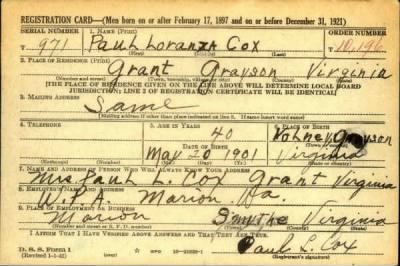 REGISTRATION CARD—(Men born on or after February 17, 1897 and on or before December 31, 1921)
SERIAL NUMBER 1. NAME (Print) ORDER NUMBER
T 971 Paul Loranza Cox T 10,196
2. PLACE OF RESIDENCE (Print)
Grant Grayson Virginia
(Number and street) (Town, township, village or city) (County) (State)
[THE PLACE OF RESIDENCE GIVEN ON THE LINE ABOVE WILL DETERMINE LOCAL BOARD
JURISDICTION; LINE 2 OF REGISTRATION CERTIFICATE WILL BE IDENTICAL]
3. MAILING ADDRESS
Same
[Mailing address if other than place indicated on line 2. If same insert word same]
4. TELEPHONE 5. AGE IN YEARS PLACE OF BIRTH
40 Volney Grayson
DATE OF BIRTH (Town or county)
May 20 1901 Virginia
(Exchange) (Number) (Mo.) (Day) (Yr.) (State or country)
7. NAME AND ADDRESS OF PERSON WHO WILL ALWAYS KNOW YOUR ADDRESS
Mrs Paul L. Cox Grant Virginia
8. EMPLOYER'S NAME AND ADDRESS
W.P.A. Marion Va.
9. PLACE OF EMPLOYMENT OR BUSINESS
Marion Smythe Virginia
(Number and street or R. F. D. number) (Town) (County) (State)
I AFFIRM THAT I HAVE VERIFIED ABOVE ANSWERS AND THAT THEY ARE TRUE.
D. S. S. Form 1
(Revised 1-1-42) GPO Paul L. Cox
(Registrant's signature)